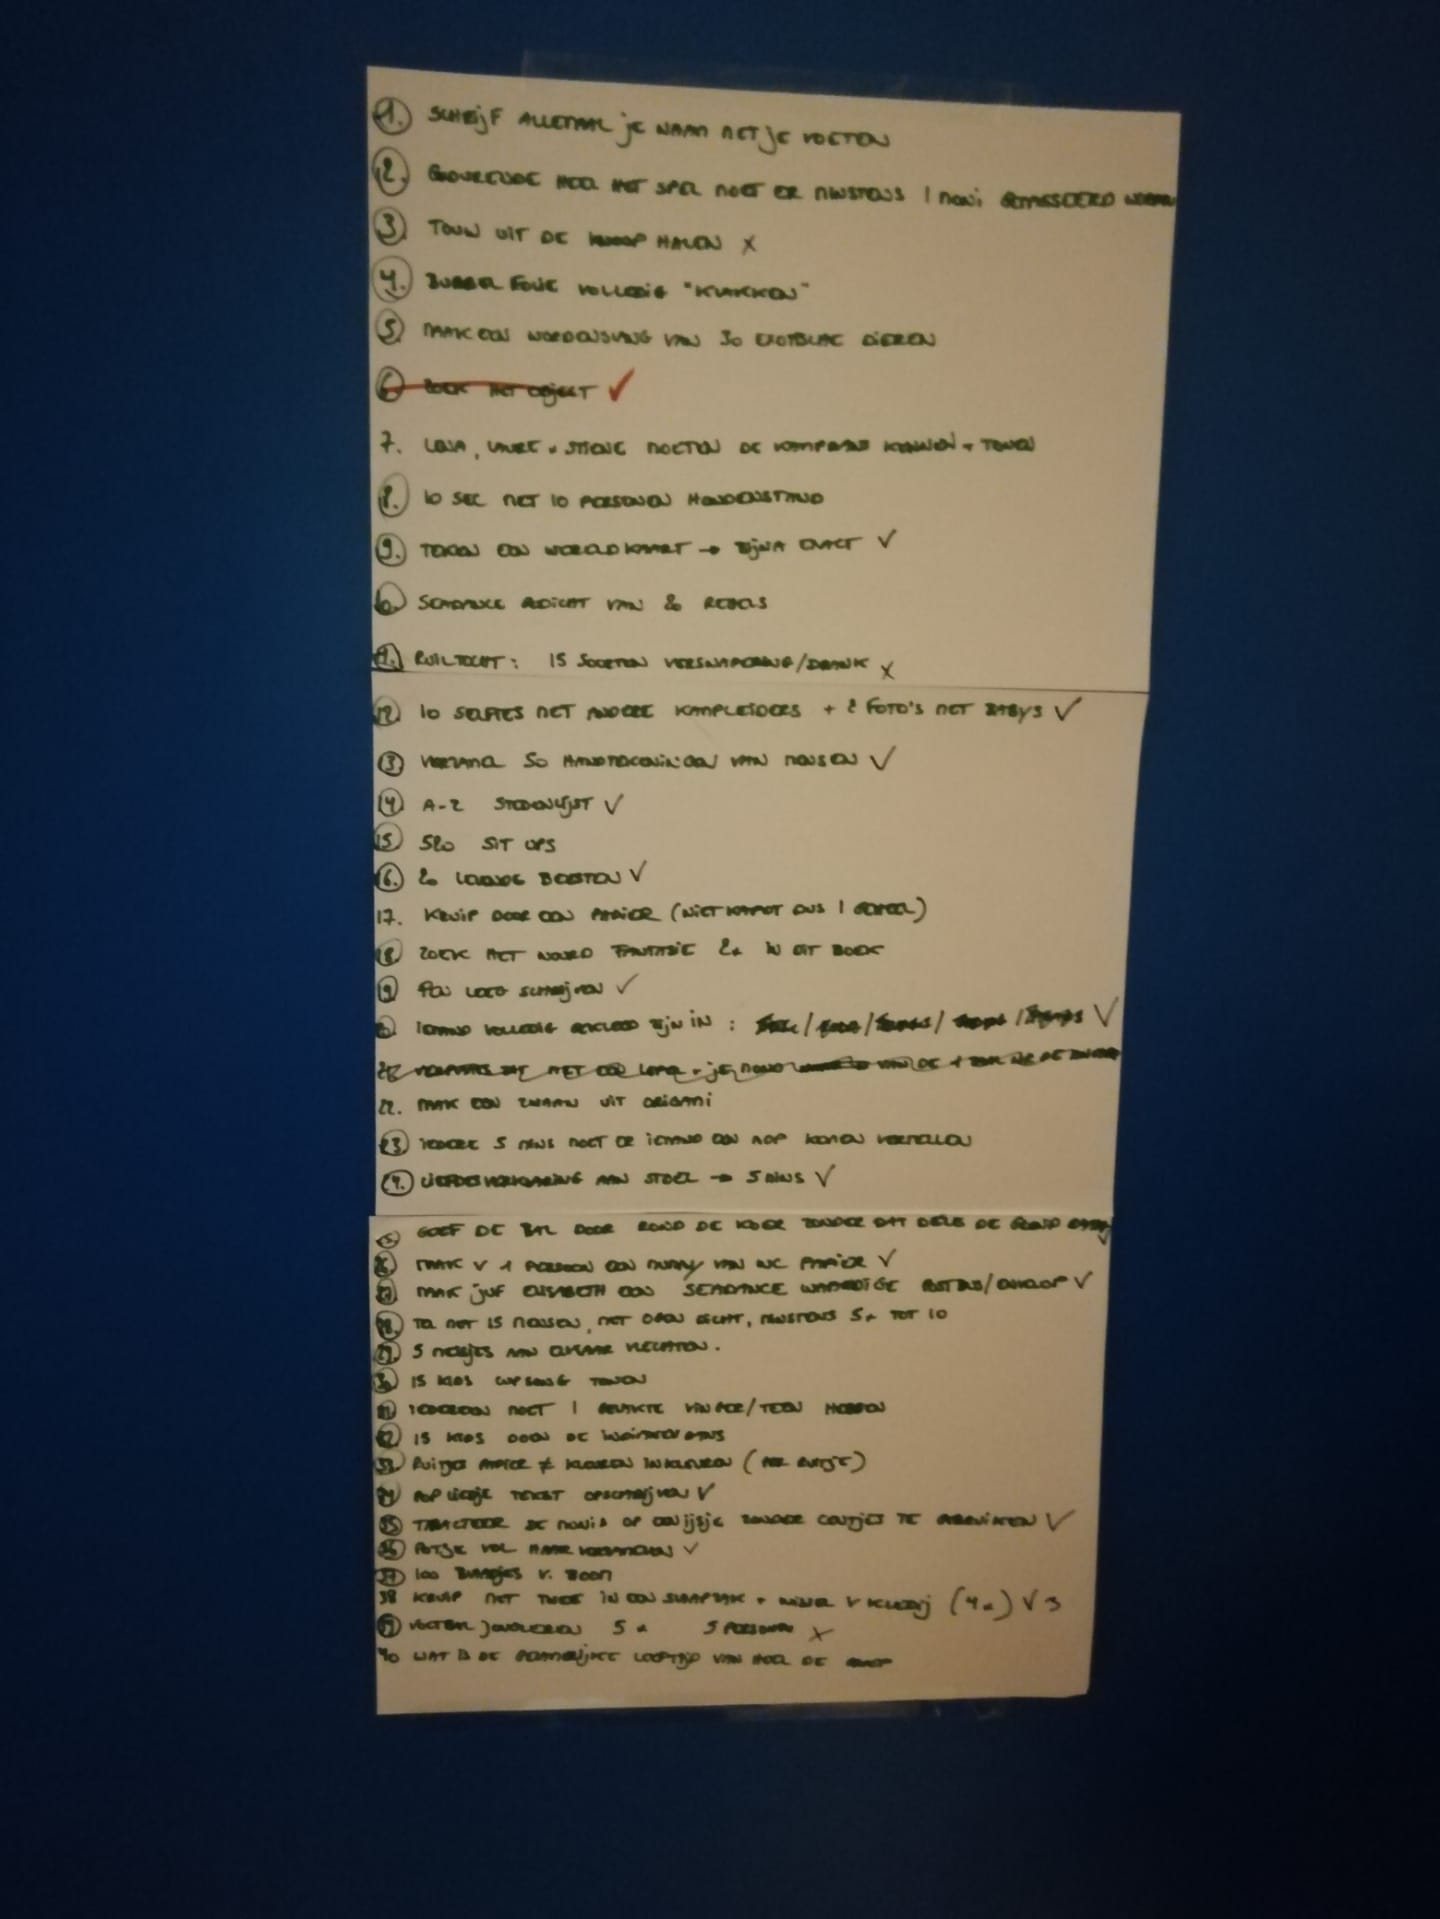 1. SCHRIJF ALLEMAAL JE NAAM MET JE VOETEN
2. GEDURENDE HEEL HET SPEL MOET ER MINSTENS 1 MONI GEMASSEERD WORDEN
3. TOUW UIT DE KNOOP HALEN X
4. BUBBEL FOLIE VOLLEDIG "KLAKKEN"
5. MAAK EEN WOORDENSLANG VAN 30 EXOTISCHE DIEREN
6 ZOEK HET OBJECT ✓
7. LENA, LAURE + MOETEN DE KAMPDANS KENNEN + TONEN
8. 10 SEC MET 10 PERSONEN HANDENSTAND
9. TEKEN EEN WERELDKAART → BIJNA EXACT ✓
10 SEADANCE GEDICHT VAN 20 REGELS
11. RUILTOCHT: 15 SOORTEN VERSNAPERING/DRANK X
12 10 SELFIES MET ANDERE KAMPLEIDERS + 2 FOTO'S MET BABYS ✓
13 VERZAMEL 50 HANDTEKENINGEN VAN MENSEN ✓
14 A-Z STEDENLIJST ✓
15 520 SIT UPS
16. 20 LEVENDE BEESTEN ✓
17. KRUIP DOOR EEN PAPIER (NIET KAPOT DUS 1 GEHEEL)
18 ZOEK HET WOORD FANTASIE 2x IN DIT BOEK
19 PEN LEEG SCHRIJVEN ✓
20 IEMAND VOLLEDIG GEKLEED ZIJN IN: / / / / ✓
21 MET EEN LEPEL + JE MOND VAN DE
22. MAAK EEN ZWAAN UIT ORIGAMI
23 IEDERE 5 MINS MOET ER IEMAND EEN MOP KOMEN VERTELLEN
24. LIEFDESVERKLARING AAN STOEL → 5 MINS ✓
25 GEEF DE BAL DOOR ROND DE KOER ZONDER DAT DEZE DE GROND RAAKT
26 MAAK V 1 PERSOON EEN MUMMY VAN WC PAPIER ✓
27 MAAK JUF ELISABETH EEN SEADANCE WAARDIGE POSTBUS/ENVELOP ✓
28. TEL MET 15 MENSEN, MET OGEN DICHT, MINSTENS 5x TOT 10
29. 5 MEISJES AAN ELKAAR VLECHTEN.
30 15 KIDS CUPSONG TONEN
31 IEDEREEN MOET 1 GELAKTE VINGER/TEEN HEBBEN
32 15 KIDS DOEN DE
33 RUITJES PAPIER ≠ KLEUREN INKLEUREN (PER RUITJE)
34 POP LIEDJE TEKST OPSCHRIJVEN ✓
35 TRAKTEER DE MONI'S OP EEN IJSJE ZONDER CENTJES TE GEBRUIKEN ✓
36 POTJE VOL HAAR VERZAMELEN ✓
37 100 BLAADJES V. BOOM
38 KRUIP MET TWEE IN EEN SLAAPZAK + WISSEL V KLEDIJ (4x) ✓ 3
39 VOETBAL JONGLEREN 5x 5 PERSONEN X
40 WAT IS DE GEZAMENLIJKE LEEFTIJD VAN HEEL DE GROEP